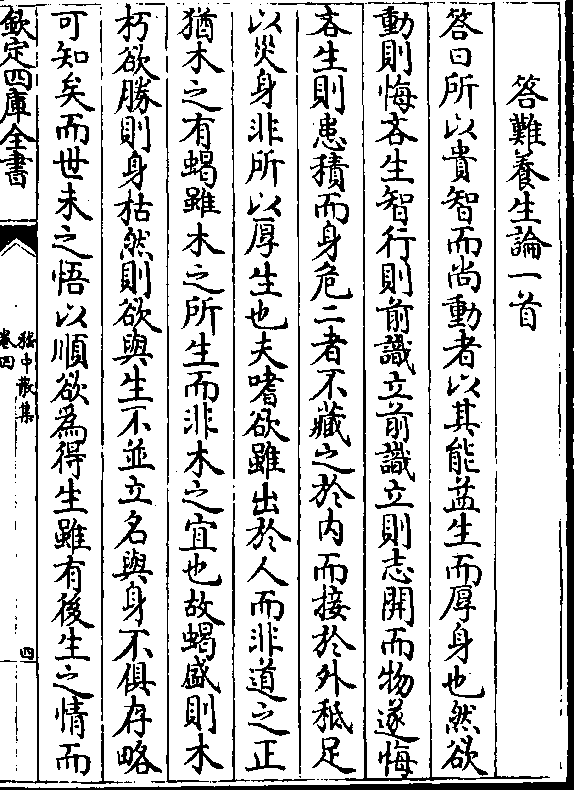 答難養生論一首
答曰所以貴智而尚動者以其能益生而厚身也然欲
動則悔吝生智行則前識立前識立則志開而物遂悔
吝生則患積而身危二者不藏之於内而接於外秪足
以災身非所以厚生也夫嗜欲雖出於人而非道之正
猶木之有蝎雖木之所生而非木之宜也故蝎盛則木
朽欲勝則身枯然則欲與生不並立名與身不俱存略
可知矣而世未之悟以順欲為得生雖有後生之情而
欽定四庫全書
嵇中散集
卷四
四